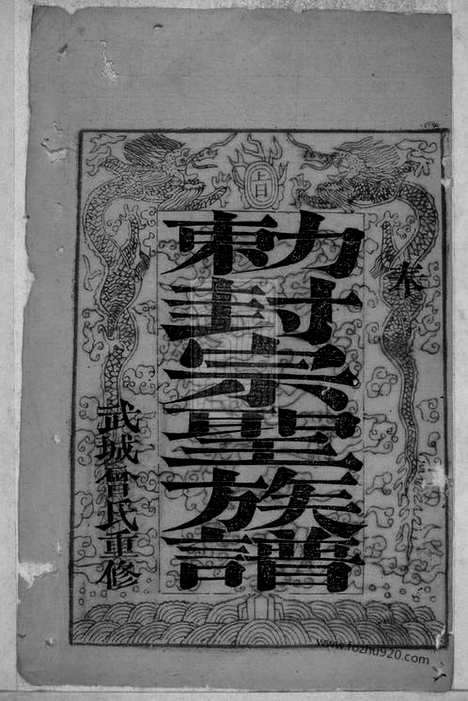 奉
旨
勅封宗聖族譜
武城曾氏重修
www.fozhu920.com